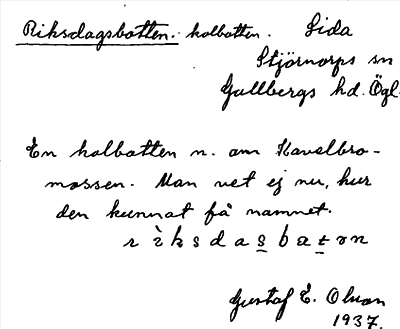 Riksdagsbotten. kolbotten. Lida
Stjörnorps sn
Gullbergs hd. Ögl.
En kolbotten n. om Kavelbro-
mossen. Man vet ej nu, hur
den kunnat få namnet.
r ì k s d a s b ɑ t ɷ n
Gustaf E. Olson
1937.